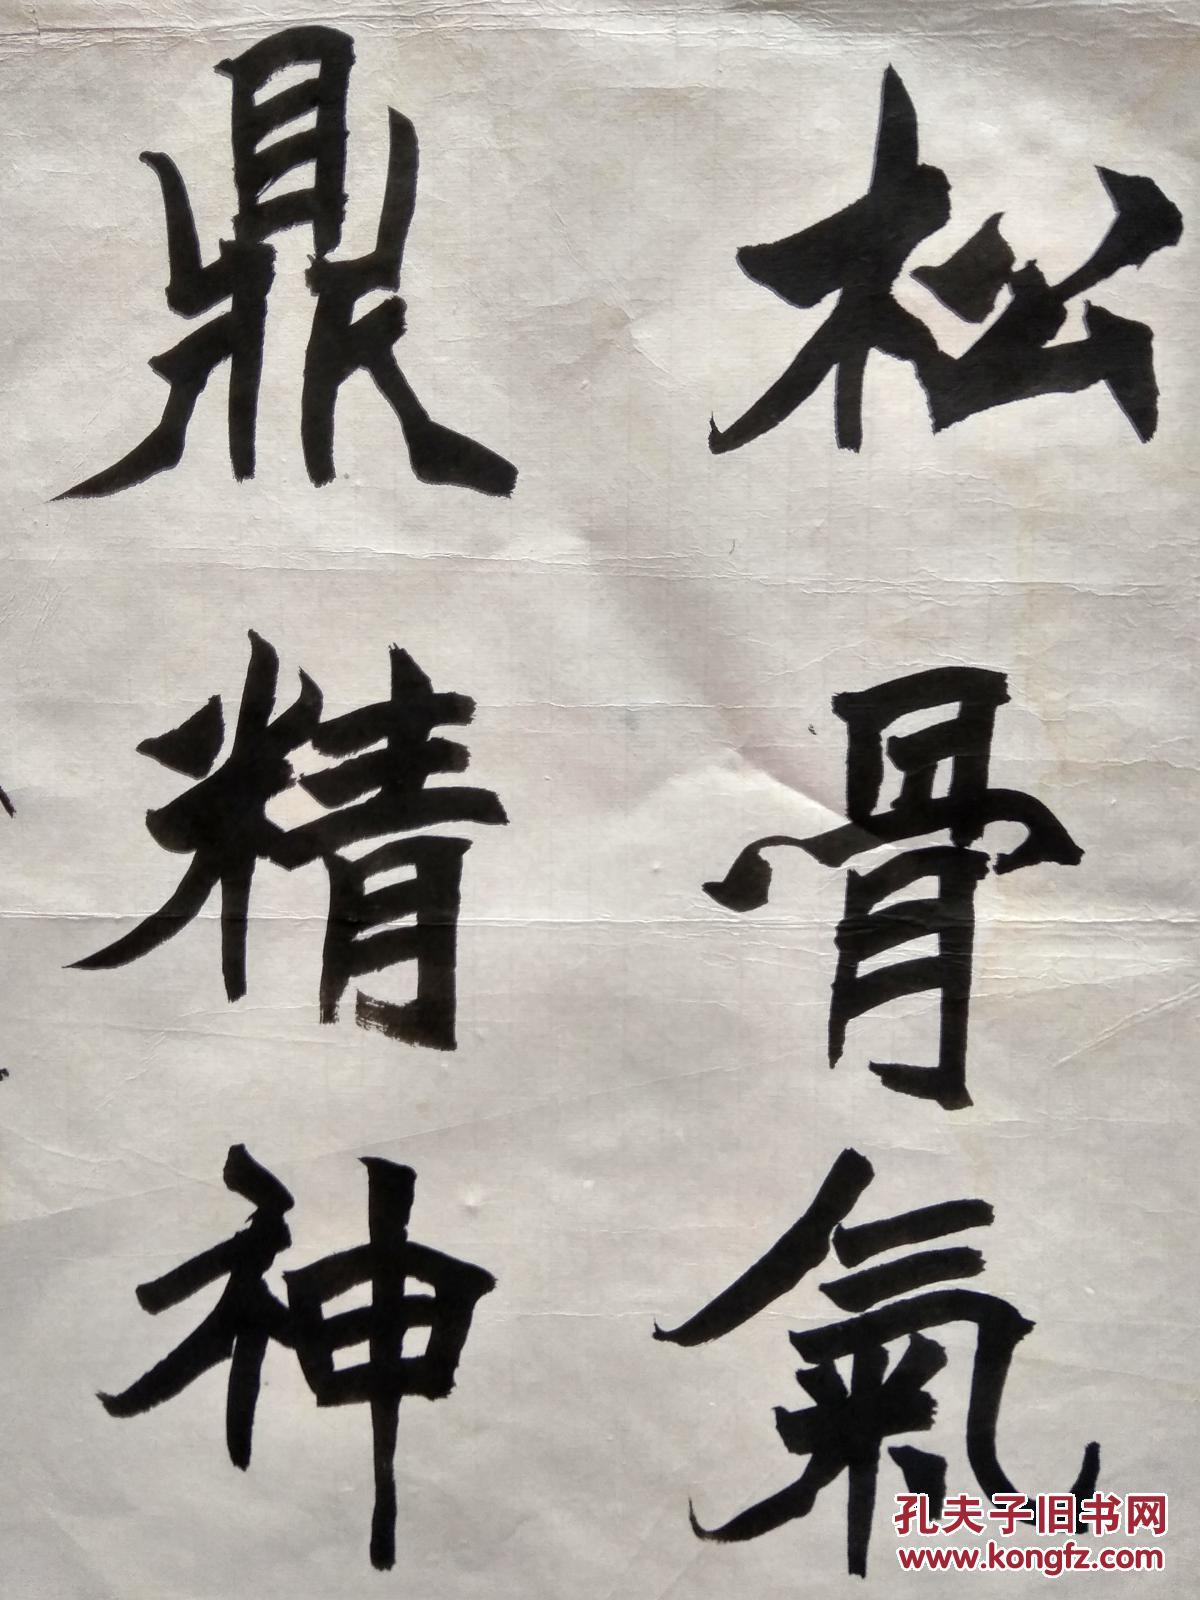 松骨氣
鼎精神
孔夫子旧书网
www.kongfz.com